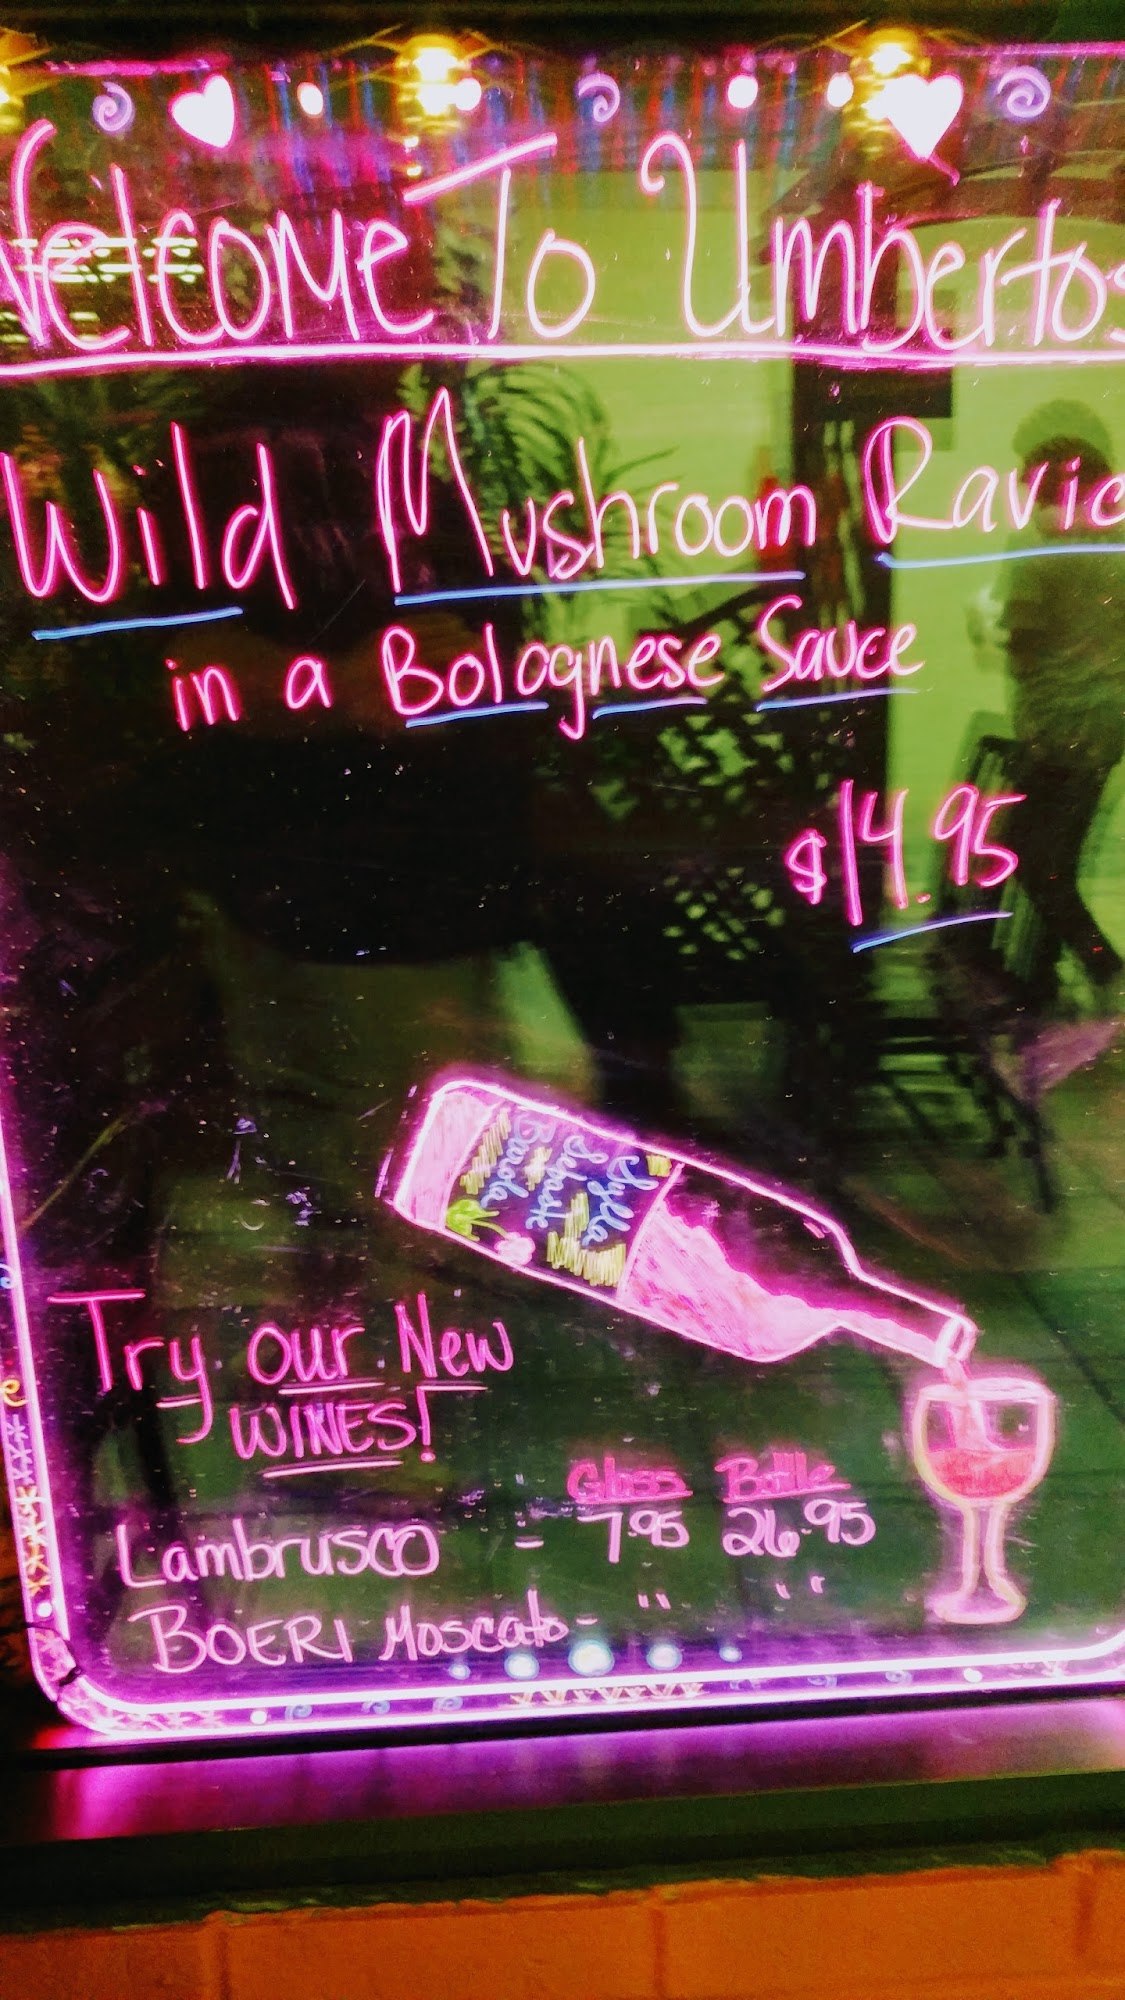 Welcome To Umbertos
Wild Mushroom Ravio
in a Bolognese Sauce
$14.95
Stella
Try our New
WINES!
Glass Bottle
Lambrusco - 7.95 26.95
BOERI Moscato - " "